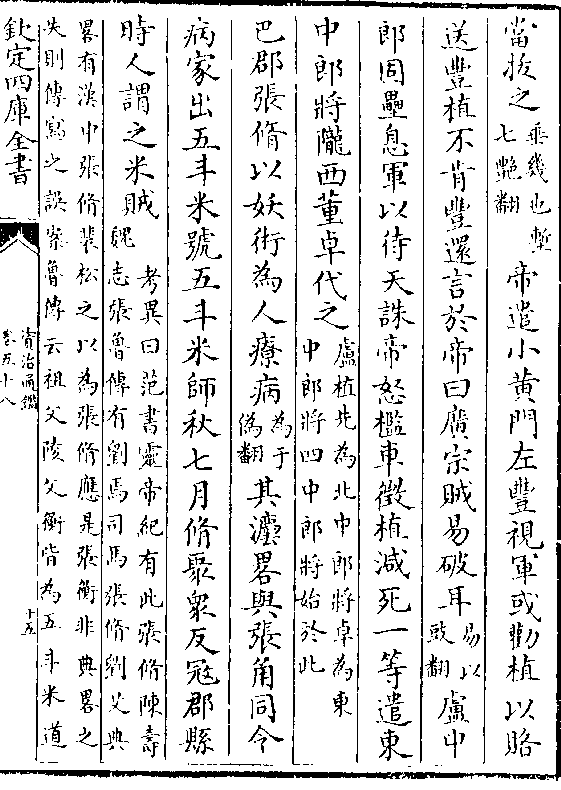 當拔之垂幾也塹七艶翻帝遣小黃門左豐視軍或勸植以賂
送豐植不肯豐還言於帝曰廣宗賊易破耳易以豉翻盧中
郎固壘息軍以待天誅帝怒檻車徵植減死一等遣東
中郎將隴西董卓代之盧植先為北中郎將卓為東中郎將四中郎將始於此
巴郡張脩以妖術為人療病為于偽翻其瀍畧與張角同令
病家出五斗米號五斗米師秋七月脩聚衆反寇郡縣
時人謂之米賊考異曰范書靈帝紀有此張脩陳壽魏志張魯傳有劉焉司馬張脩劉艾典
畧有漢中張脩裴松之以為張脩應是張衡非典畧之
失則傳寫之誤案魯傳云祖父陵父衡皆為五斗米道
欽定四庫全書
資治通鑑
卷五十八
十五